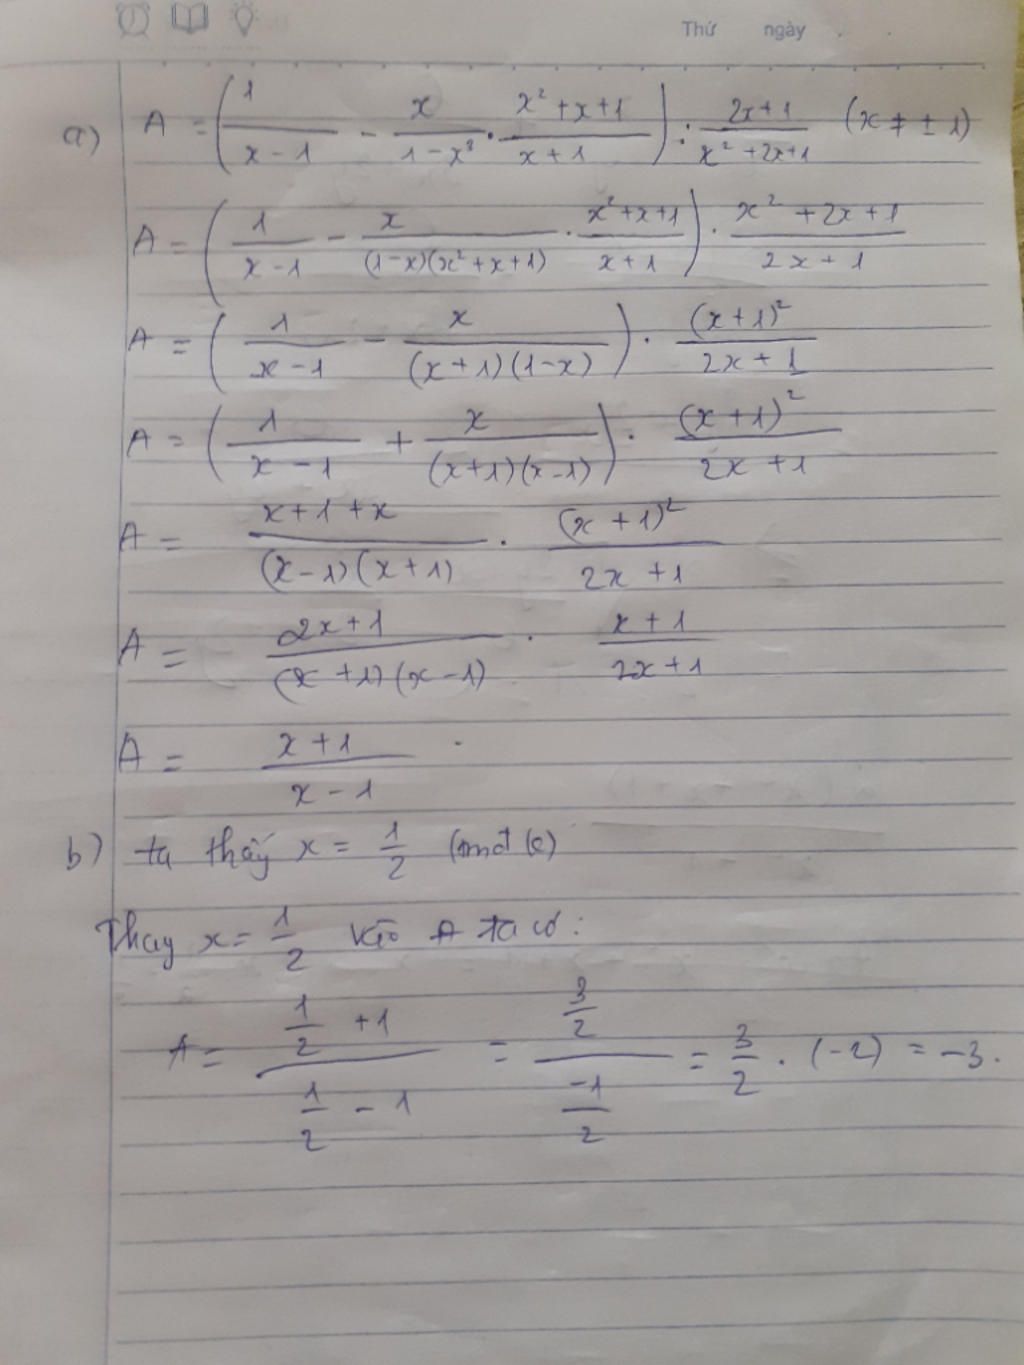 Thứ ngày
a) A = (1/(x-1) - x/(1-x³) . (x²+x+1)/(x+1)) : (2x+1)/(x²+2x+1) (x ≠ ± 1)
A = (1/(x-1) - x/((1-x)(x²+x+1)) . (x²+x+1)/(x+1)) . (x²+2x+1)/(2x+1)
A = (1/(x-1) - x/((x+1)(1-x))) . (x+1)²/(2x+1)
A = (1/(x-1) + x/((x+1)(x-1))) . (x+1)²/(2x+1)
A = (x+1+x)/((x-1)(x+1)) . (x+1)²/(2x+1)
A = (2x+1)/((x+1)(x-1)) . (x+1)/(2x+1)
A = (x+1)/(x-1) .
b) ta thấy x = 1/2
Thay x = 1/2 vào A ta có :
A = (1/2 + 1)/(1/2 - 1) = (3/2)/(-1/2) = 3/2 . (-2) = -3.